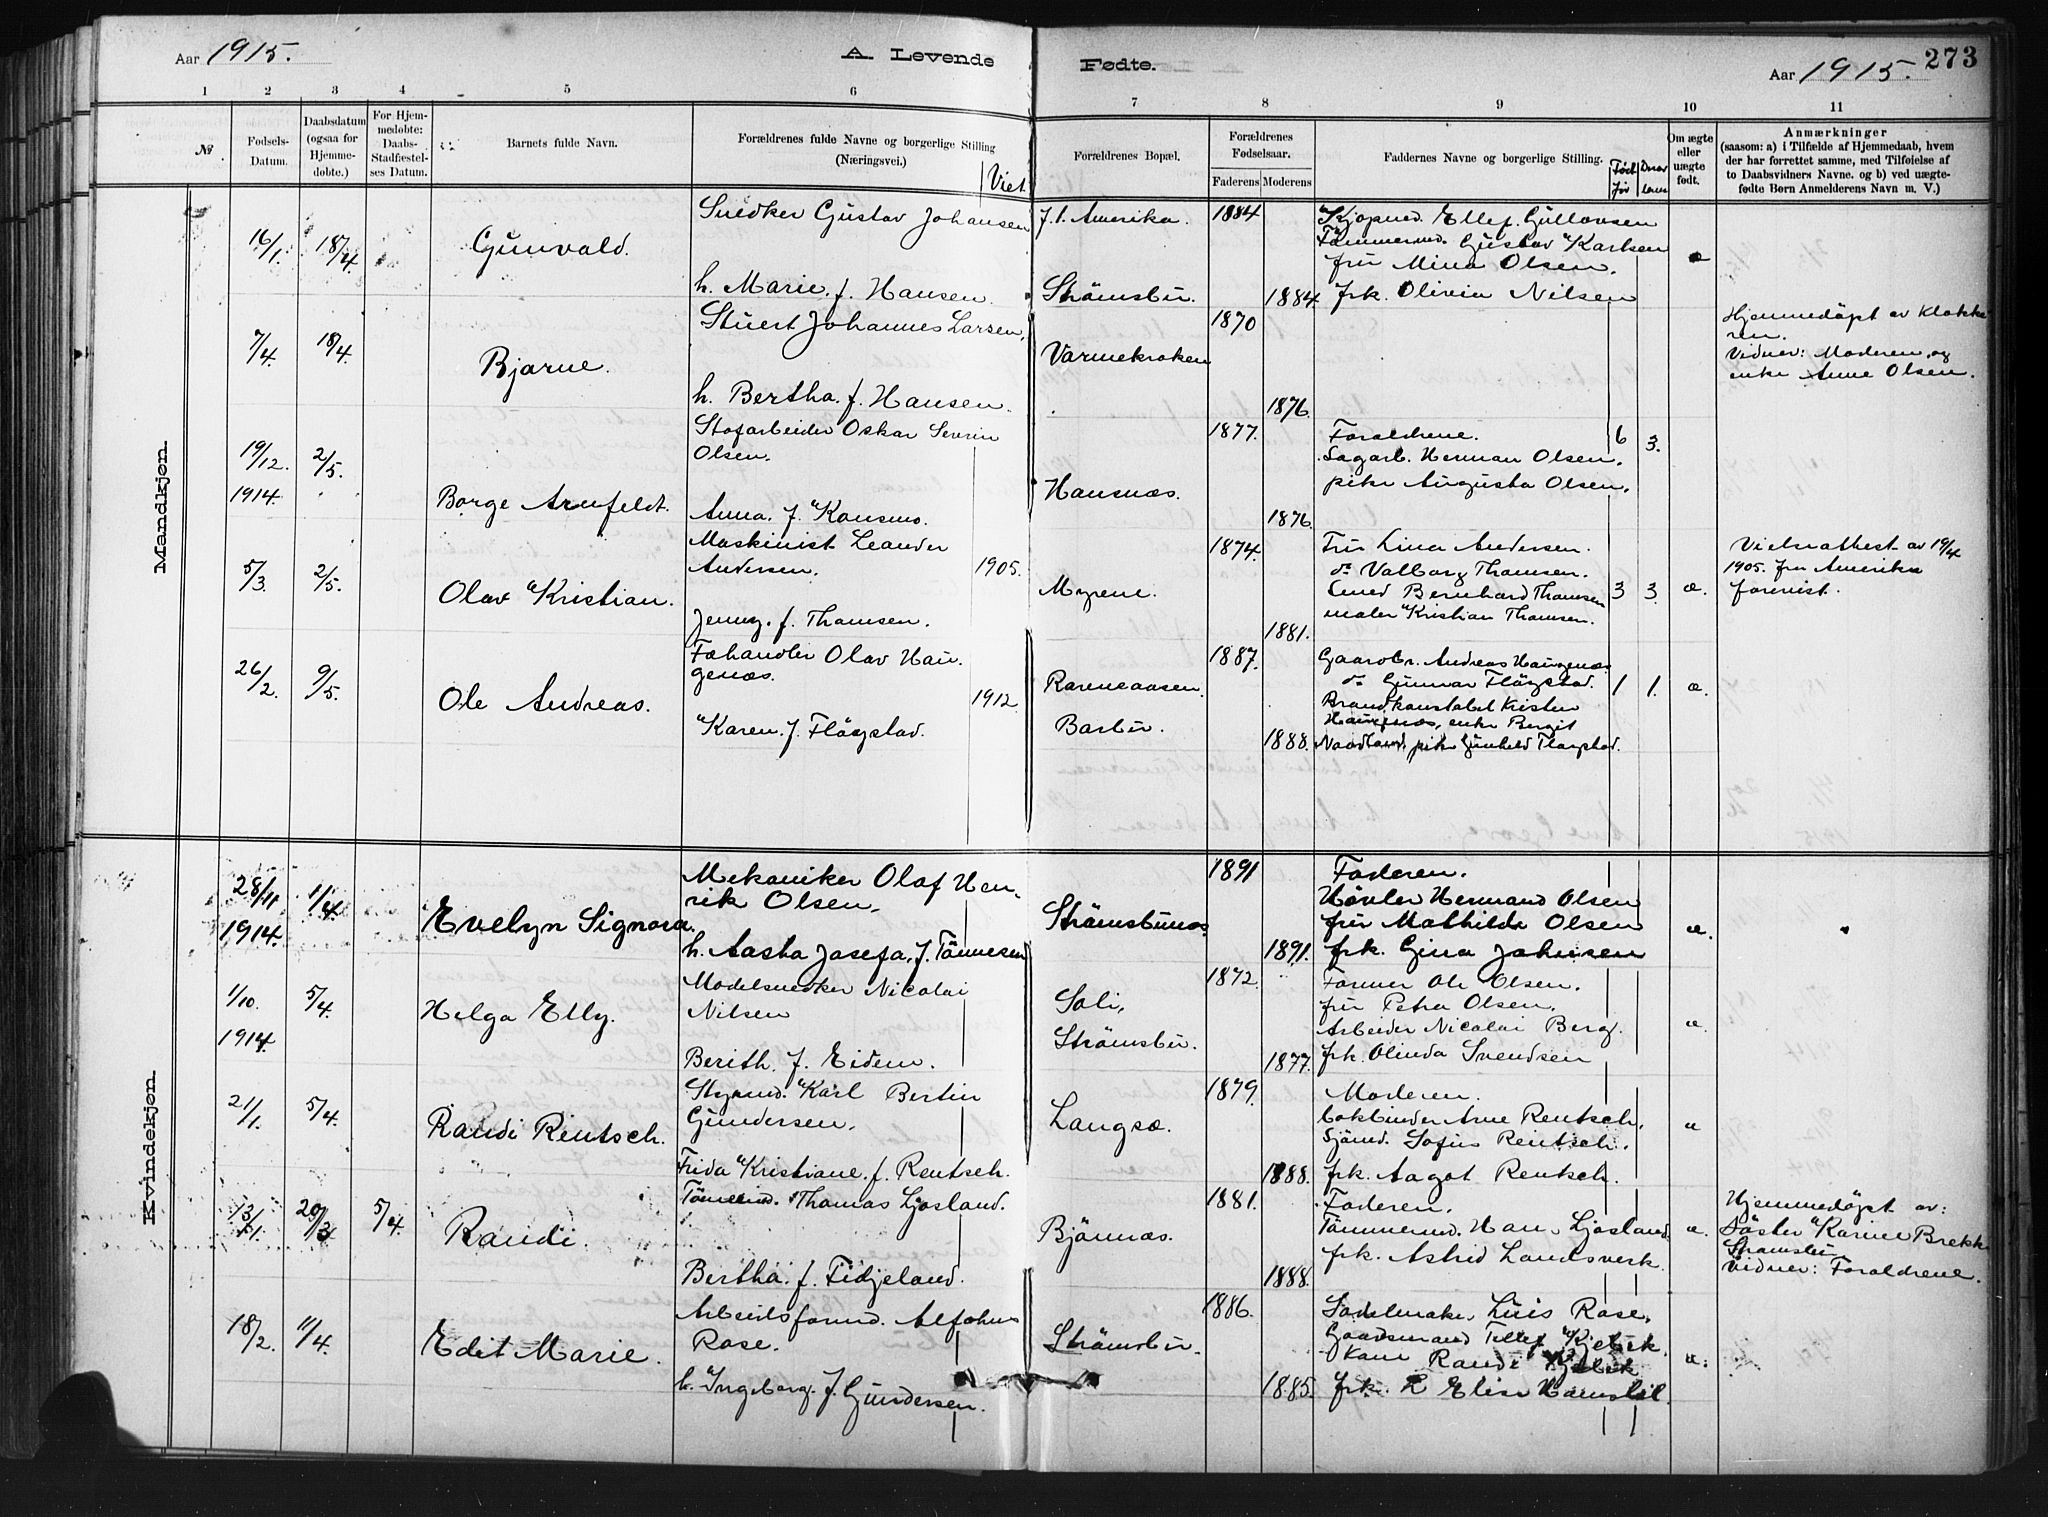 Aar 1915.
A. Levende
Fødte.
Aar 1915.
273
1 2 3 4 5 6 7 8 9 10 11
№
Fødsels-
Datum.
Daabsdatum
(ogsaa for
Hjemme-
døbte.)
For Hjem-
medøbte:
Daabs-
Stadfæstel-
ses Datum.
Barnets fulde Navn.
Forældrenes fulde Navne og borgerlige Stilling
(Næringsvei.)
Viet
Forældrenes Bopæl.
Forældrenes
Fødselsaar.
Faderens Moderens
Faddernes Navne og borgerlige Stilling.
Født
før
Om ægte
eller
uægte
født.
Anmærkninger
(saasom: a) i Tilfælde af Hjemmedaab, hvem
der har forrettet samme, med Tilføielse af
to Daabsvidners Navne. og b) ved uægte-
fødte Børn Anmelderens Navn m. V.)
Mandkjøn.
16/1. 18/4. Gunvald.
Snedker Gustav Johansen
h. Marie. f. Hansen.
f. t. Amerika.
Strømsbu.
1884
1884
Kjøpmd. Ellef. Gullovsen
Tømmermd. Gustav Karlsen
fru Mina Olsen.
frk. Olivia Nilsen
7/4. 18/4. Bjarne.
Stuert Johannes Larsen,
h. Bertha. f. Hansen.
Varmekroken
1870
1876.
Hjemmedøpt av Klokke
ren.
Vidner: Moderen, og
enke Anne Olsen.
19/12. 2/5.
1914. Borge Arnfeldt.
Stofarbeider Oskar Severin
Olsen.
Anna. f. Kansmo.
Hansnæs.
1877.
1876.
Foraldrene.
Sagarb. Herman Olsen.
pike Augusta Olsen.
6 3.
5/3. 2/5. Olav Kristian.
Maskinist Leander
Andersen.
1905.
Jenny. f. Thomsen.
Myrene.
1874.
1881.
Fru Lina Andersen.
do Valborg Thomsen.
Smed Bernhard Thomsen
maler Kristian Thomsen.
3 3. æ.
Vielsnathest av 19/4
1905. fra Amerika
forevist.
26/2. 9/5. Ole Andreas.
Fæhandler Olav Hau-
genæs.
1912.
Karen. f. Fløystad.
Rareneaasen.
Barbu.
1887.
1888.
Gaardbr. Andreas Haugenæs.
do Gunnar Fløystad.
Brandkonstabel Kristen
Haugenæs, enke Bergit
pike Gunhild Fløystad.
1 1. æ.
Kvindekjøn.
28/11 1/4.
1914. Evelyn Signora.
Mekaniker Olaf Hen-
rik Olsen.
h. Aasta Josefa. f. Tønnesen
Strømsbunes
1891
1891.
Faderen.
Høvler Hermand Olsen
fru Mathilde Olsen
frk. Gina Johnsen
æ.
1/10. 5/4.
1914. Helga Elly.
Modelsnedker Nicolai
Nilsen
Berith. f. Eidem.
Soli,
Strømsbu.
1872.
1877.
Former Ole Olsen.
fru Petra Olsen.
Arbeider Nicolai Berg.
frk. Olinda Svendsen
æ
21/1. 5/4. Randi Rentsch.
Styrmd. Karl Bertin
Gundersen.
Frida Kristiane. f. Rentsch.
Langsæ.
1879.
1888.
Moderen.
bokbinder Arne Rentsch.
Sjømd. Sofus Rentsch.
frk. Aagot Rentsch.
13/1. 20/3 5/4. Randi.
Tømmermd. Thomas Ljosland.
Bertha. f. Fidjeland.
Bjønnæs.
1881.
1888.
Faderen.
Tømmermd. Han. Ljosland.
frk. Astrid Landsverk.
æ.
Hjemmedøpt av:
Søster Karine Brekk
Strømsbu.
Vidner: Foraldrene.
18/2. 11/4. Edit Marie.
Arbeidsformd. Alfohns
Rose.
h. Ingeborg. f. Gundersen.
Strømsbu.
1886.
1885.
Sadelmaker Luis Rose.
Gaardsmand Tellef Kjebik.
Kone Randi Kjebik
frk. Elise Harnslil.
æ.